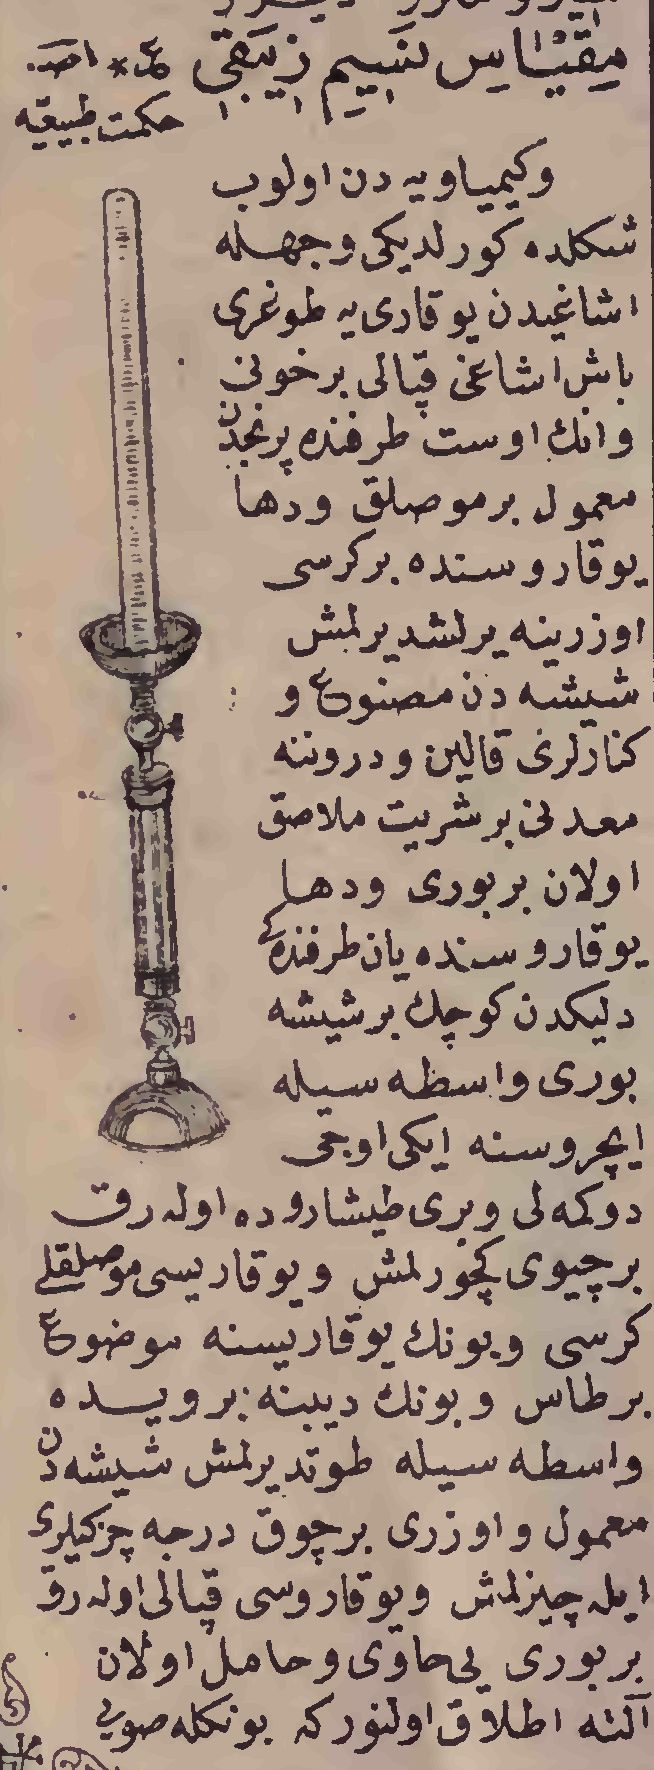 مقیاس نسیم زیبقی ع * اصـ.
حکمت طبیعیه
وکیمیاویه دن اولوب
شکلده کورلدیکی وجهله
اشاغیدن یوقاری یه طوغری
باش اشاغی قپالی برخونی
وانك اوست طرفنده پرنجدن
معمول برموصلق ودها
یوقاروسنده برکرسی
اوزرینه یرلشدیرلمش
شیشه دن مصنوع و
کنارلری قالین ودروننه
معدنی برشریت ملاصق
اولان بربوری ودها
یوقاروسنده یان طرفنده کی
دلیکدن کوچك برشیشه
بوری واسطه سیله
ایچروسنه ایکی اوجی
دوکمه لی وبری طیشاروده اوله رق
برچیوی کچورلمش ویوقاریسی موصلقلی
کرسی وبونك یوقاریسنه موضوع
برطاس وبونك دیبنه برویده
واسطه سیله طوتدیرلمش شیشه دن
معمول واوزری برچوق درجه چزکیلری
ایله چیزلمش ویوقاروسی قپالی اوله رق
بربوری یی حاوی وحامل اولان
آلته اطلاق اولنورکه بونکله صویی